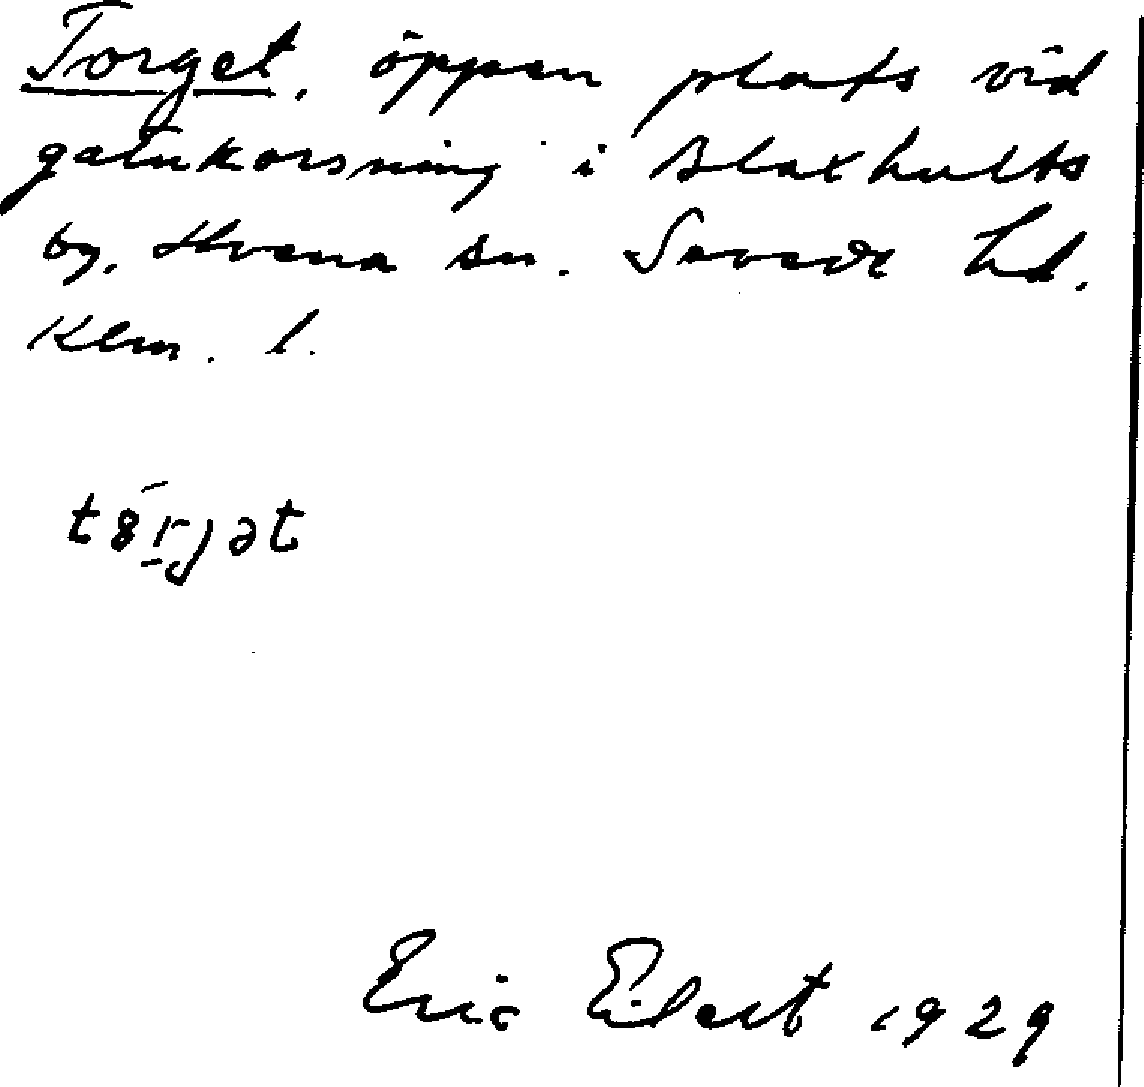 Torget, öppen plats vid
gatukorsning i Blaxhults
by, Hvena sn. Sevede hd.
Klm. l.
t8rjət
Eric Eilert 1929